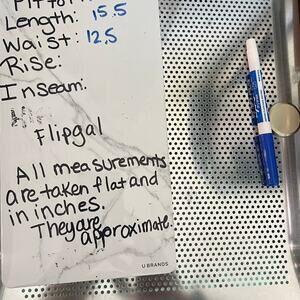 Length: 15.5
Waist: 12.5
Rise:
Inseam:
Flipgal
All measurements
are taken flat and
in inches.
They are
approximate.
U BRANDS